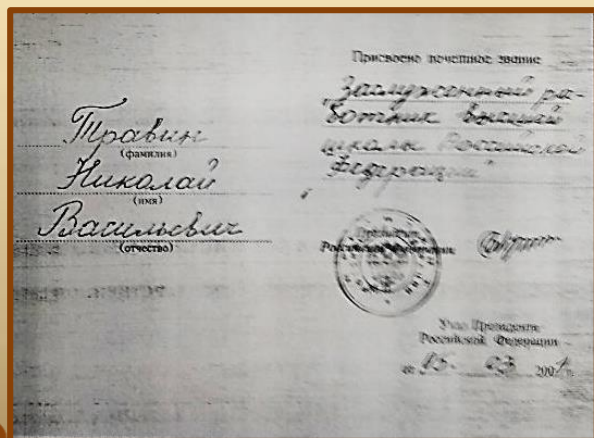 Травин
(фамилия)
Николай
(имя)
Васильевич
(отчество)
Присвоено почетное звание
"Заслуженный ра-
ботник высшей
школы Российской
Федерации"
Президент
Российской Федерации
Указ Президента
Российской Федерации
от 15. 03 2001 г.